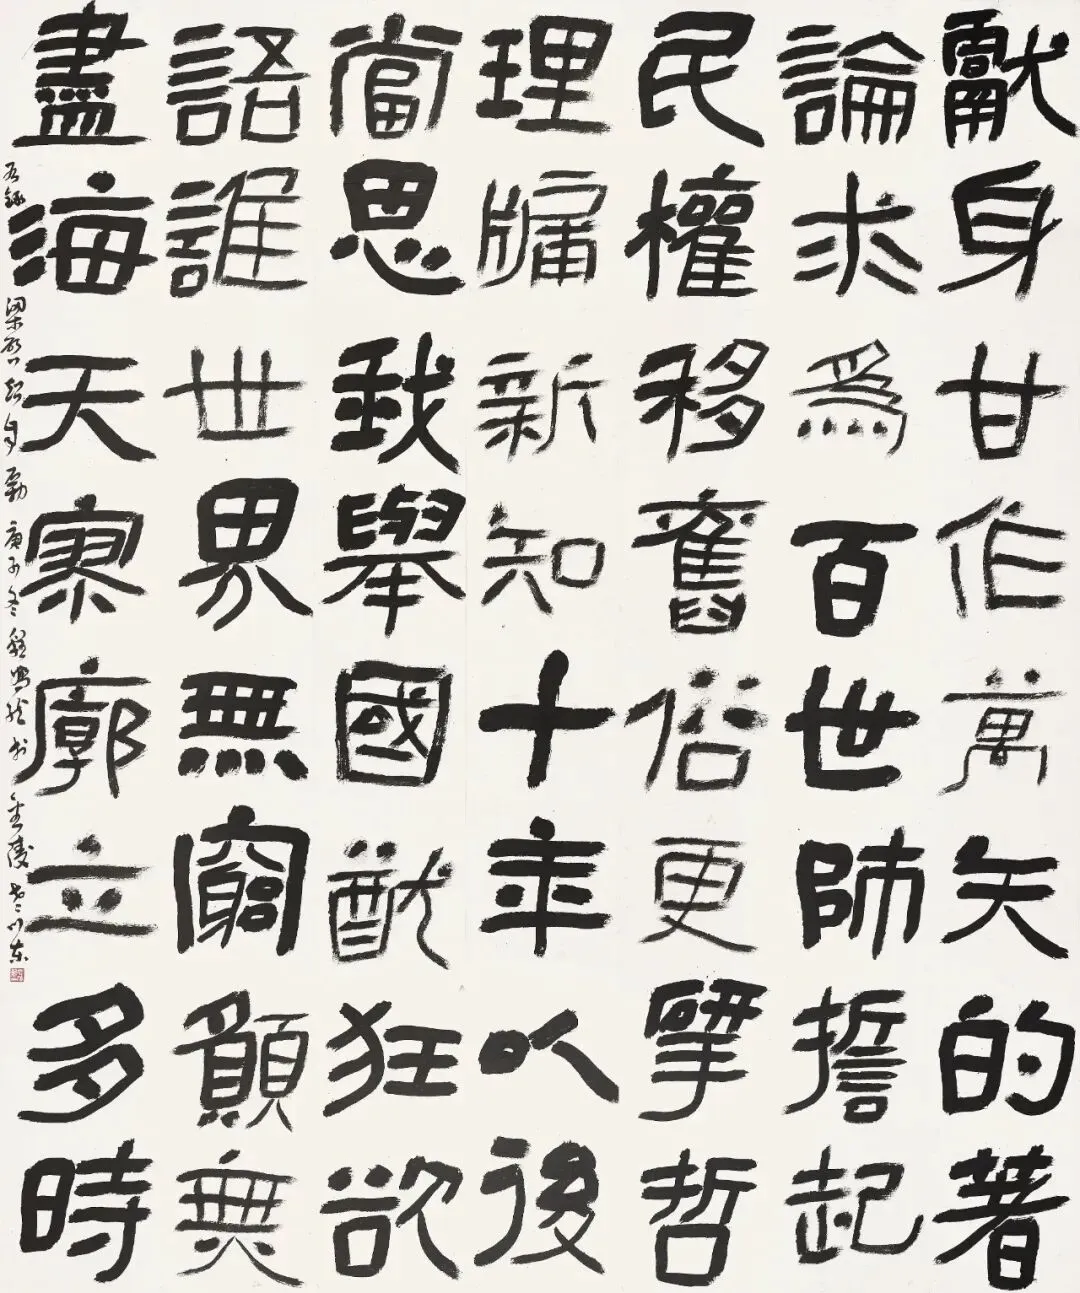 獻身甘作萬矢的著
論求爲百世師誓起
民權移舊俗更揅哲
理牖新知十年以後
當思我舉國猷狂欲
語誰世界無窮願無
盡海天寥廓立多時
右録梁啓超自勵庚子冬